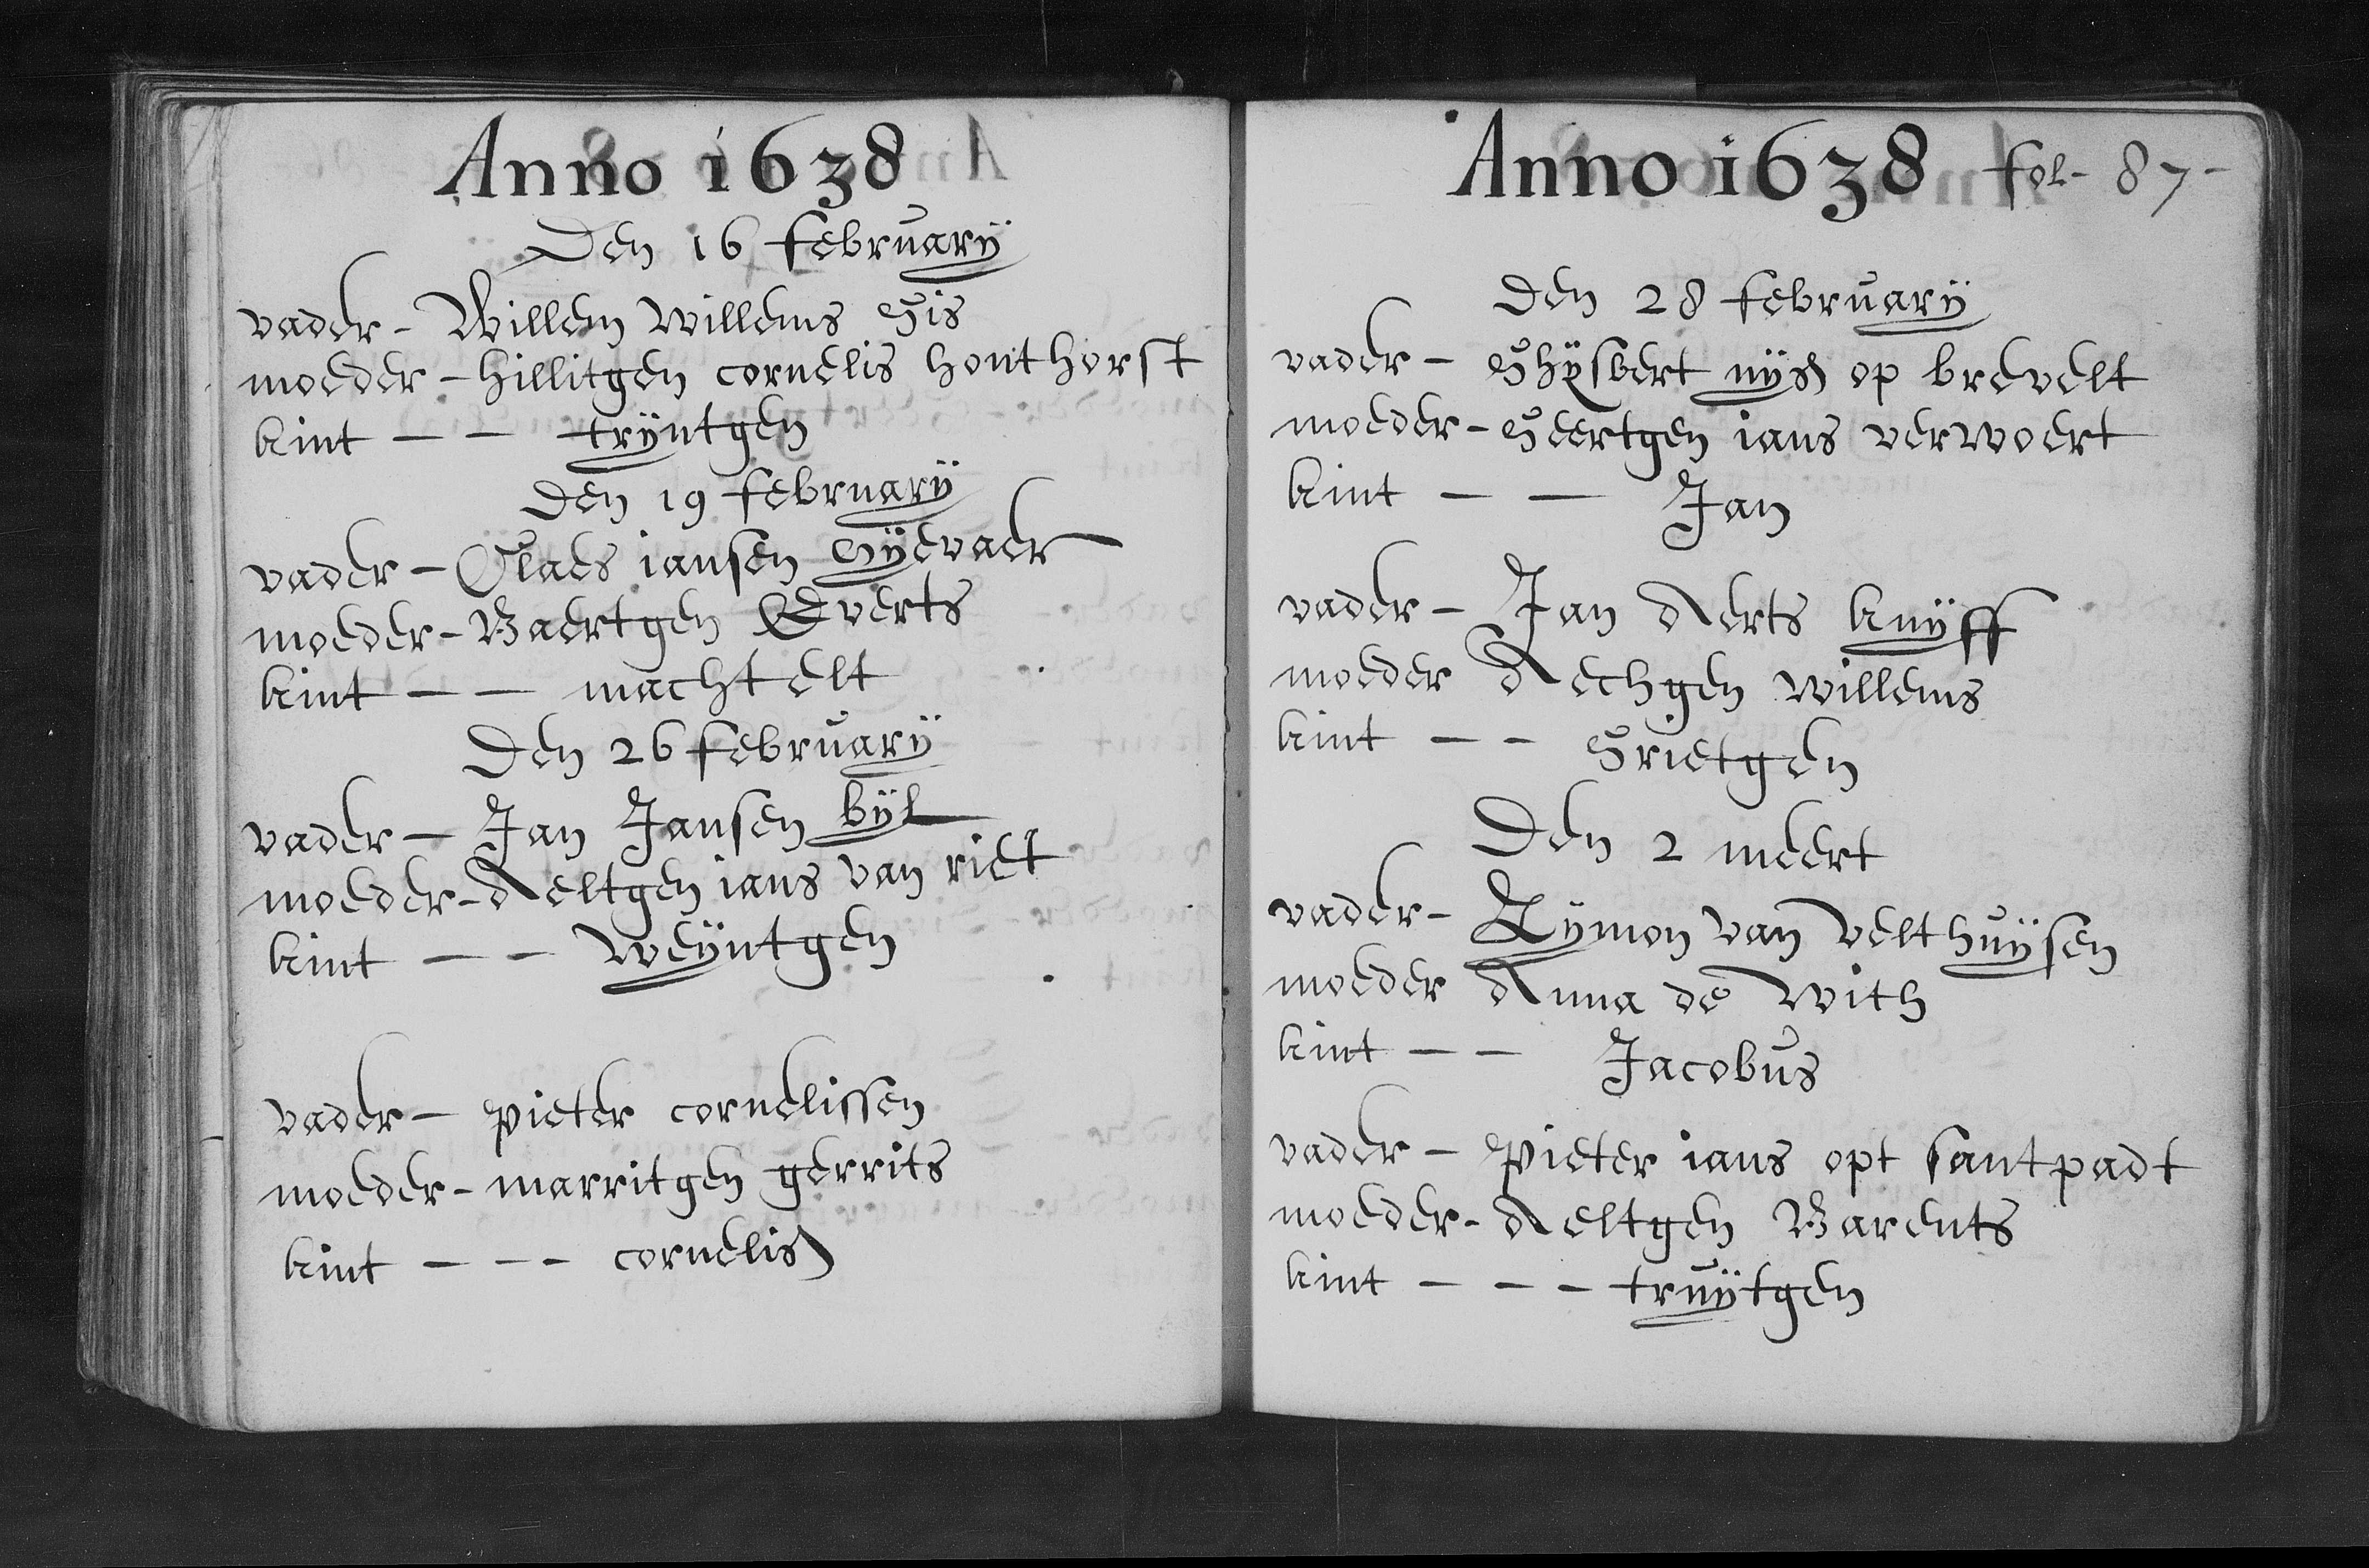 Anno 1638
Den 16 februarÿ
vader - Willem willems Gis
moeder - hillitgen cornelis honthorst
kint - - trÿntgen
Den 19 februarÿ
vader - Claes iansen Gÿevaer
moeder - Baertgen Everts
kint - - machtelt
Den 26 februarÿ
vader - Jan Jansen bÿl
moeder - Aeltgen ians van riet
kint - - Weÿntgen
vader - pieter cornelissen
moeder - marritgen gerrits
kint - - - cornelis
Anno 1638 fol - 87 -
Den 28 februarÿ
vader - Ghÿsbert nÿs op brevelt
moeder - Geertgen ians verwoert
kint - - Jan
vader - Jan Aerts knÿff
moeder Aechgen willems
kint - - Grietgen
Den 2 meert
vader - Zÿmon van velthuÿsen
moeder Anna de With
kint - - Jacobus
vader - Pieter ians opt santpadt
moeder - Aeltgen Barents
kint - - - truÿtgen